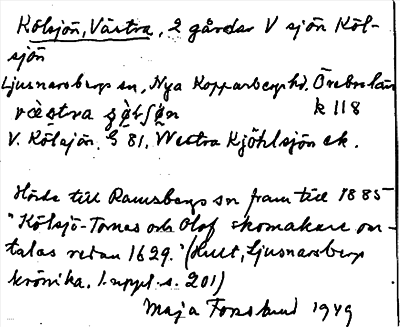 Kölsjön, Västra, 2 gårdar V sjön Köl-
sjön
Ljusnarsbergs sn, Nya Kopparbergs hd. Örebro län
væstra
k 118
V. Kölsjön, G 81, Westra Kjöhlsjön ek.
Hörde till Ramsbergs sn fram till 1885
"Kölsjö-Tomas och Olof skomakare om-
talas redan 1629." (Hult, Ljusnarsbergs
krönika, 1. uppl. s. 201)
Maja Forslund 1949